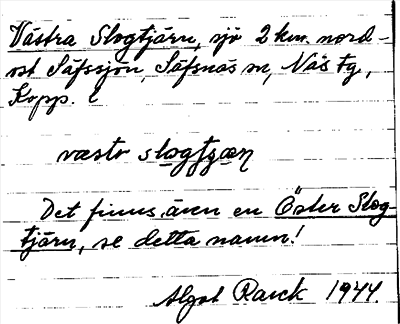 Västra Slogtjärn, sjö 2 km. nord-
ost Säfssjön, Säfsnäs sn, Näs tg,
Kopp. l
væstv slogtȷæɳ
Det finns även en Öster Slog-
tjärn, se detta namn!
Algot Rauck 1944.